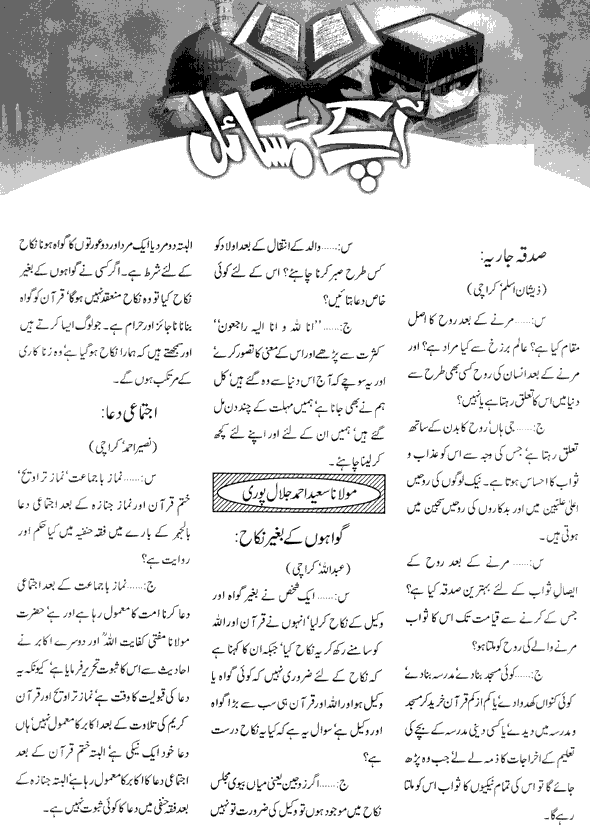 آپ کے مسائل
صدقہ جاریہ:
(ذیشان اسلم‘ کراچی)
س:...... مرنے کے بعد روح کا اصل
مقام کیا ہے؟ عالم برزخ سے کیا مراد ہے؟ اور
مرنے کے بعد انسان کی روح کسی بھی طرح سے
دنیا میں اس کا تعلق رہتا ہے یا نہیں؟
ج:...... جی ہاں‘ روح کا بدن کے ساتھ
تعلق رہتا ہے‘ جس کی وجہ سے اس کو عذاب و
ثواب کا احساس ہوتا ہے۔ نیک لوگوں کی روحیں
اعلیٰ علیین میں اور بدکاروں کی روحیں سجین میں
ہوتی ہیں۔
س:...... مرنے کے بعد روح کے
ایصال ثواب کے لئے بہترین صدقہ کیا ہے؟
جس کے کرنے سے قیامت تک اس کا ثواب
مرنے والے کی روح کو ملتا ہو؟
ج:...... کوئی مسجد بنادے‘ مدرسہ بنادے‘
کوئی کنواں کھدوادے‘ یا کم از کم قرآن خرید کر مسجد
و مدرسہ میں دیدے‘ یا کسی دینی مدرسہ کے بچے کی
تعلیم کے اخراجات کا ذمہ لے لے‘ جب وہ پڑھ
جائے گا تو اس کی تمام نیکیوں کا ثواب اس کو ملتا
رہے گا۔
س:...... والد کے انتقال کے بعد اولاد کو
کس طرح صبر کرنا چاہئے؟ اس کے لئے کوئی
خاص دعا بتائیں؟
ج:...... ’’انا للہ و انا الیہ راجعون‘‘
کثرت سے پڑھے اور اس کے معنی کا تصور کرے‘
اور یہ سوچے کہ آج اس دنیا سے وہ گئے ہیں‘ کل
ہم نے بھی جانا ہے‘ ہمیں مہلت کے چند دن مل
گئے ہیں‘ ہمیں ان کے لئے اور اپنے لئے کچھ
کرلینا چاہئے۔
مولانا سعید احمد جلال پوری
گواہوں کے بغیر نکاح:
(عبداللہ‘ کراچی)
س:...... ایک شخص نے بغیر گواہ اور
وکیل کے نکاح کرلیا‘ انہوں نے قرآن اور اللہ
کو سامنے رکھ کر یہ نکاح کیا‘ جبکہ ان کا کہنا ہے
کہ نکاح کے لئے ضروری نہیں کہ کوئی گواہ یا
وکیل ہو اور اللہ اور قرآن ہی سب سے بڑا گواہ
اور وکیل ہے‘ سوال یہ ہے کہ کیا یہ نکاح درست
ہے؟
ج:...... اگر زوجین یعنی میاں بیوی مجلس
نکاح میں موجود ہوں تو وکیل کی ضرورت تو نہیں
البتہ دو مرد یا ایک مرد اور دو عورتوں کا گواہ ہونا نکاح
کے لئے شرط ہے۔ اگر کسی نے گواہوں کے بغیر
نکاح کیا تو وہ نکاح منعقد نہیں ہوگا‘ قرآن کو گواہ
بنانا ناجائز اور حرام ہے۔ جو لوگ ایسا کرتے ہیں
اور سمجھتے ہیں کہ ہمارا نکاح ہوگیا ہے‘ وہ زنا کاری
کے مرتکب ہوں گے۔
اجتماعی دعا:
(نصیر احمد‘ کراچی)
س:...... نماز با جماعت‘ نماز تراویح‘
ختم قرآن اور نماز جنازہ کے بعد اجتماعی دعا
بالجہر کے بارے میں فقہ حنفیہ میں کیا حکم اور
روایت ہے؟
ج:...... نماز باجماعت کے بعد اجتماعی
دعا کرنا امت کا معمول رہا ہے اور ہے‘ حضرت
مولانا مفتی کفایت اللہؒ اور دوسرے اکابر نے
احادیث سے اس کا ثبوت تحریر فرمایا ہے‘ کیونکہ یہ
دعا کی قبولیت کا وقت ہے‘ نماز تراویح اور قرآن
کریم کی تلاوت کے بعد اکابر کا معمول نہیں‘ ہاں
دعا خود ایک نیکی ہے‘ البتہ ختم قرآن کے بعد
اجتماعی دعا کا اکابر کا معمول رہا ہے‘ البتہ جنازہ کے
بعد فقہ حنفی میں دعا کا کوئی ثبوت نہیں ہے۔